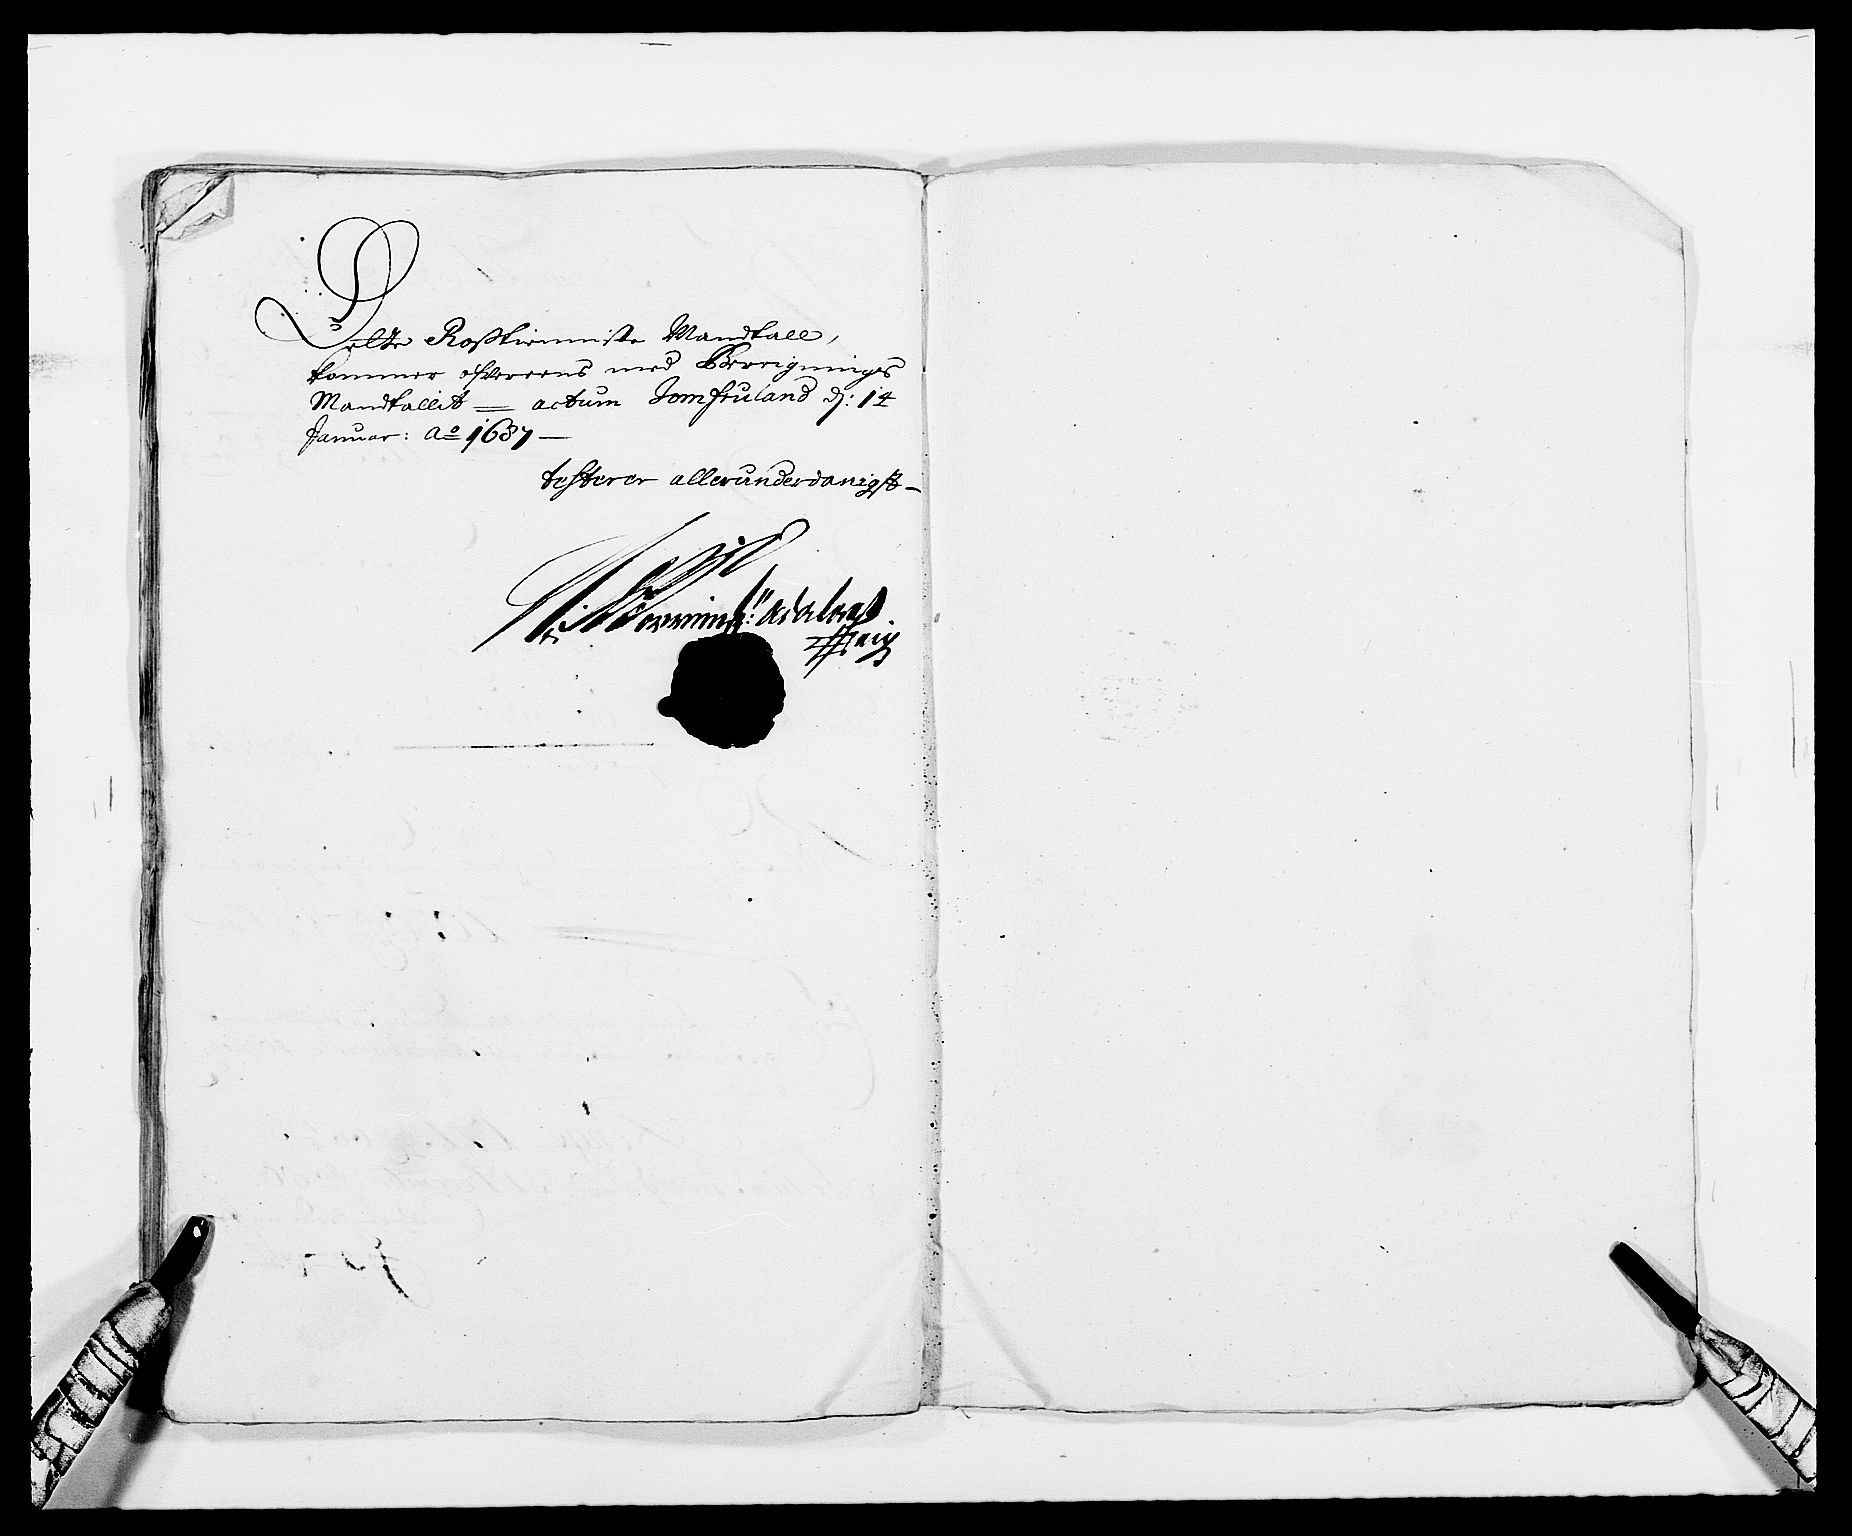 Dette Rosstienniste Mandtall,
kommer ofvereens med Berreignings
Mandtallit = actum Jomfruland d: 14
Januar: Ao 1687 —
testerer allerunderdanigst —